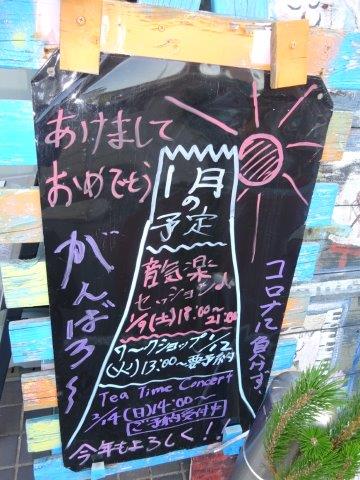 あけまして
おめでとう
1月
の
予定
音気楽
セッション♪
1/9(土)18:00〜
21:00
ワークショップ1/12
(火)13:00〜要予約
Tea Time Concert
2/14(日)14:00〜
ご予約受付中
がんばろ〜
コロナに負けず
今年もよろしく!!